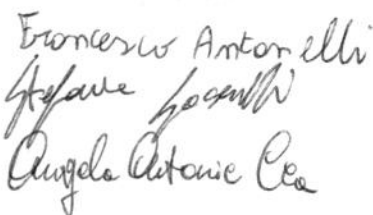 Francesco Antonelli
Stefano
Angelo Antonio Cea